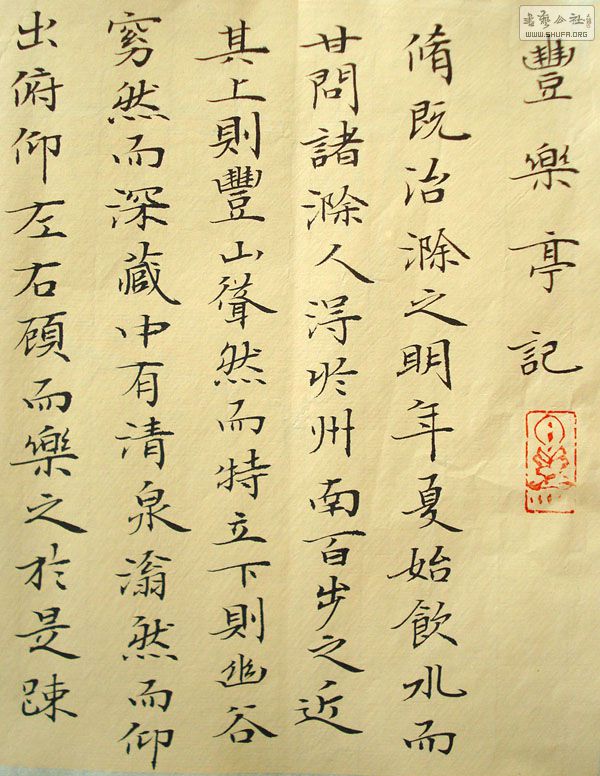 豐樂亭記
脩既治滁之明年夏始飲水而
甘問諸滁人得於州南百步之近
其上則豐山聳然而特立下則幽谷
窈然而深藏中有清泉滃然而仰
出俯仰左右顧而樂之於是踈
WWW.SHUFA.ORG